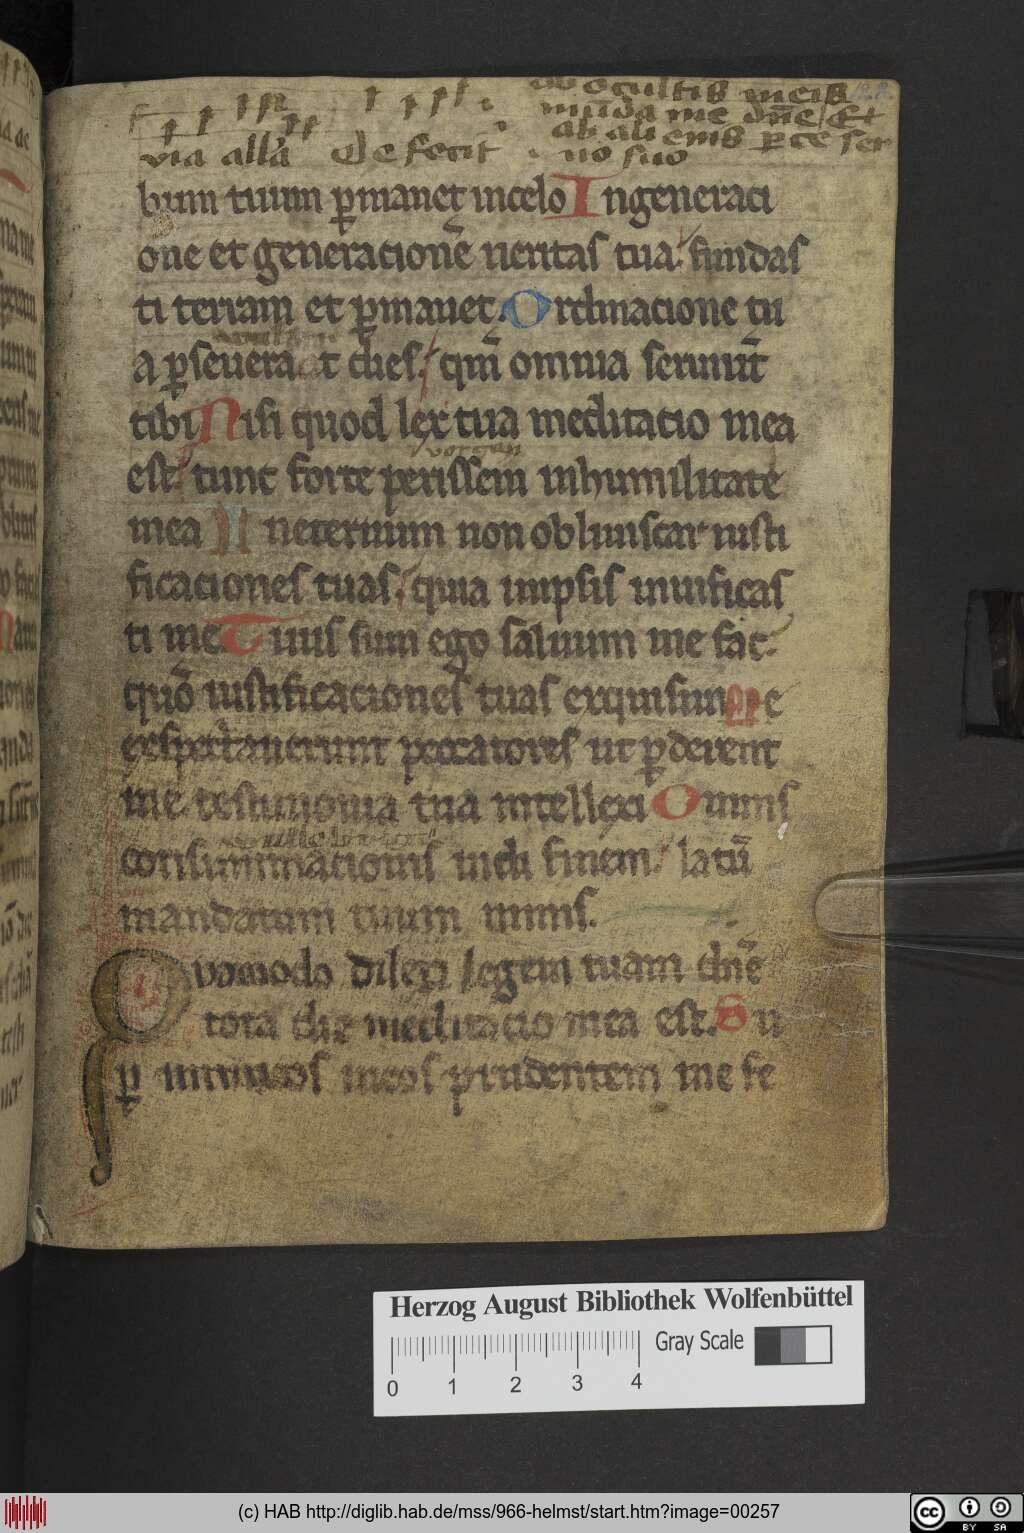 ab ocultis meis
munda me dn̄e Et
ab alienis ꝑce ser
via alla Defecit uo suo
bum tuum ꝑmanet incelo In generaci
one et generacionē ueritas tua fundas
ti terram et ꝑmanet. Ordinacione tu
a ꝑseuerat dies. qm̄ omnia seruiūt
tibi Nisi quod lex tua meditacio mea
est tunc forte perissem inhumilitate
mea Ineternum non obliuiscar iusti
ficaciones tuas. quia inipsis uiuificas
ti me. Tuus sum ego saluum me fac
quō iustificaciones tuas exquisiui Me
exspectauerunt peccatores ut ꝑderent
me. testimonia tua intellexi Omnis
consummationis uidi finem. latū
mandatum tuum nimis.
Quomodo dilexi legem tuam dn̄e
tota die meditacio mea est. Su
ꝑ inimicos meos prudentem me fe
Herzog August Bibliothek Wolfenbüttel
Gray Scale
0 1 2 3 4
(c) HAB http://diglib.hab.de/mss/966-helmst/start.htm?image=00257
cc BY SA